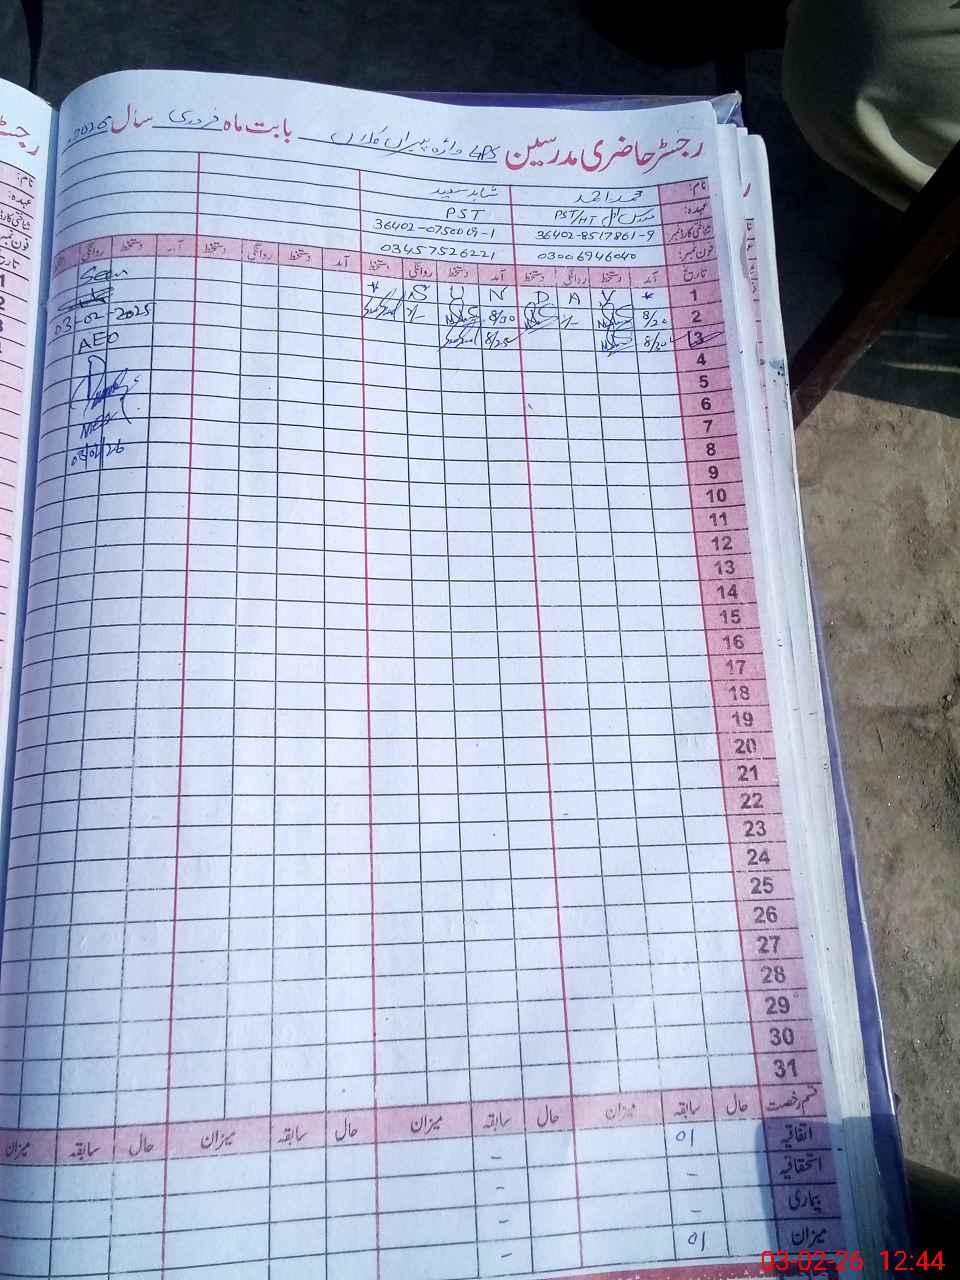 رجسٹر حاضری مدرسین GPS واڑہ پیراں بابت ماہ فروری سال 2026ء
نام: محمد احمد شاہد سعید
عہدہ: PST/HT PST
شناختی کارڈ نمبر 36402-8517861-9 36402-0750019-1
فون نمبر: 03006946040 03457526221
تاریخ آمد دستخط روانگی دستخط آمد دستخط روانگی دستخط آمد دستخط روانگی دستخط آمد دستخط روانگی
1 * Y A D N U S *
2 8/20 8/30
3 8/20 8/25
4
5
6
7
8
9
10
11
12
13
14
15
16
17
18
19
20
21
22
23
24
25
26
27
28
29
30
31
Seen
03-02-2025
AEO
03/02/26
قسم رخصت حال سابقہ میزان حال سابقہ میزان حال سابقہ میزان حال سابقہ میزان
اتفاقیہ 01 -
استحقاقیہ - -
بیماری - -
میزان 01 -
03-02-26 12:44